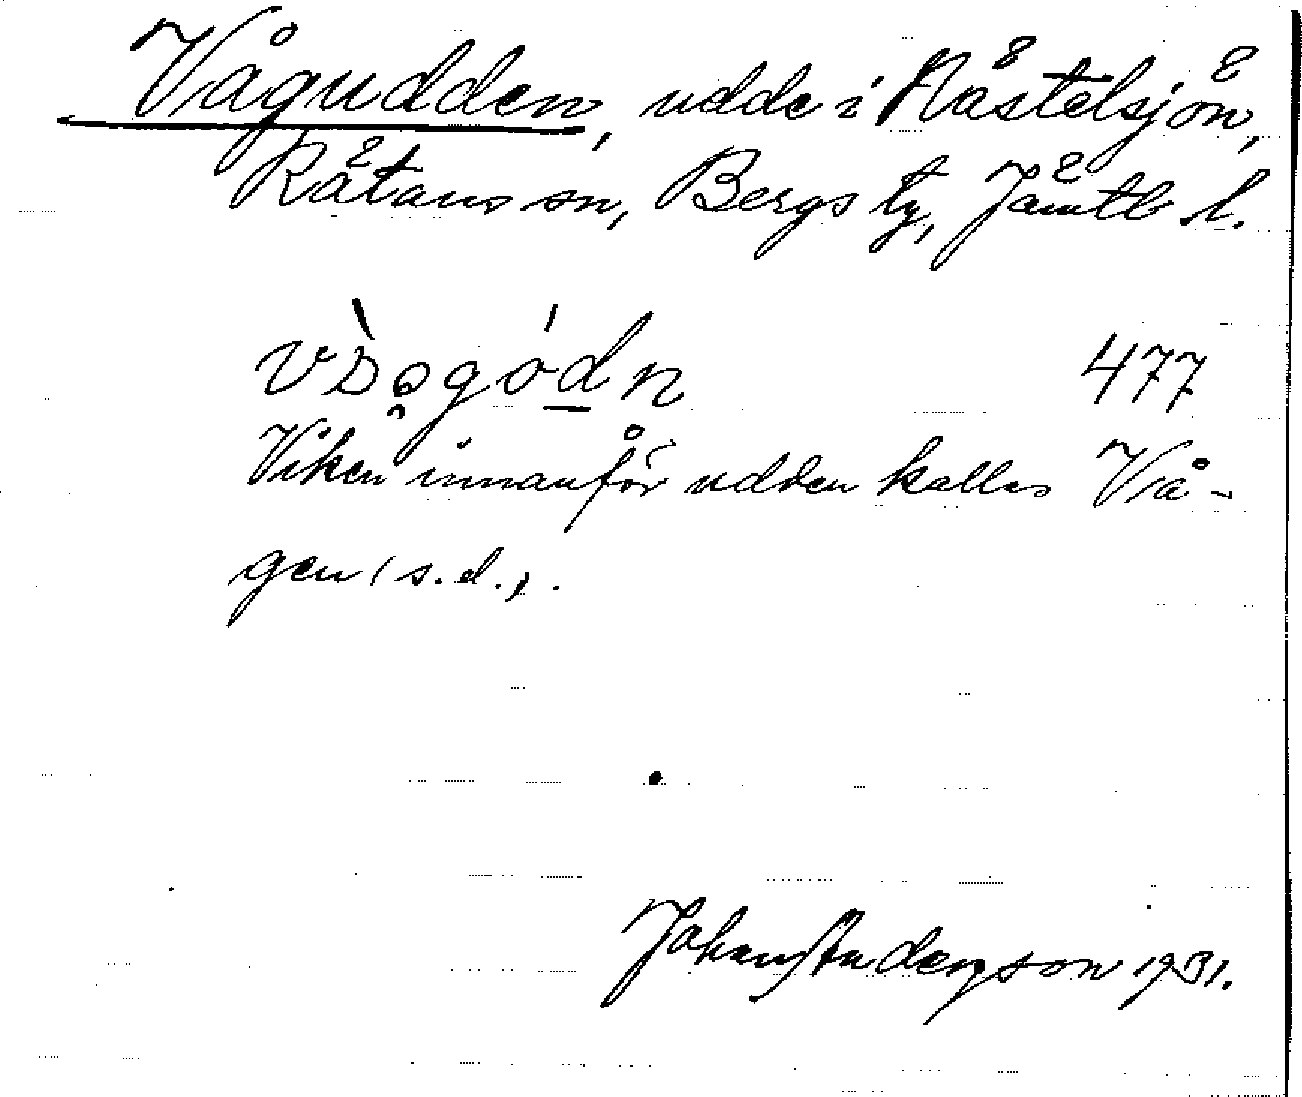 Vågudden, udde i Nästelsjön,
Rätans sn, Bergs tg, Jämtl. l.
477
Viken innanför udden kallas Vå-
gen (s. d.).
Johan Anderzson 1931.